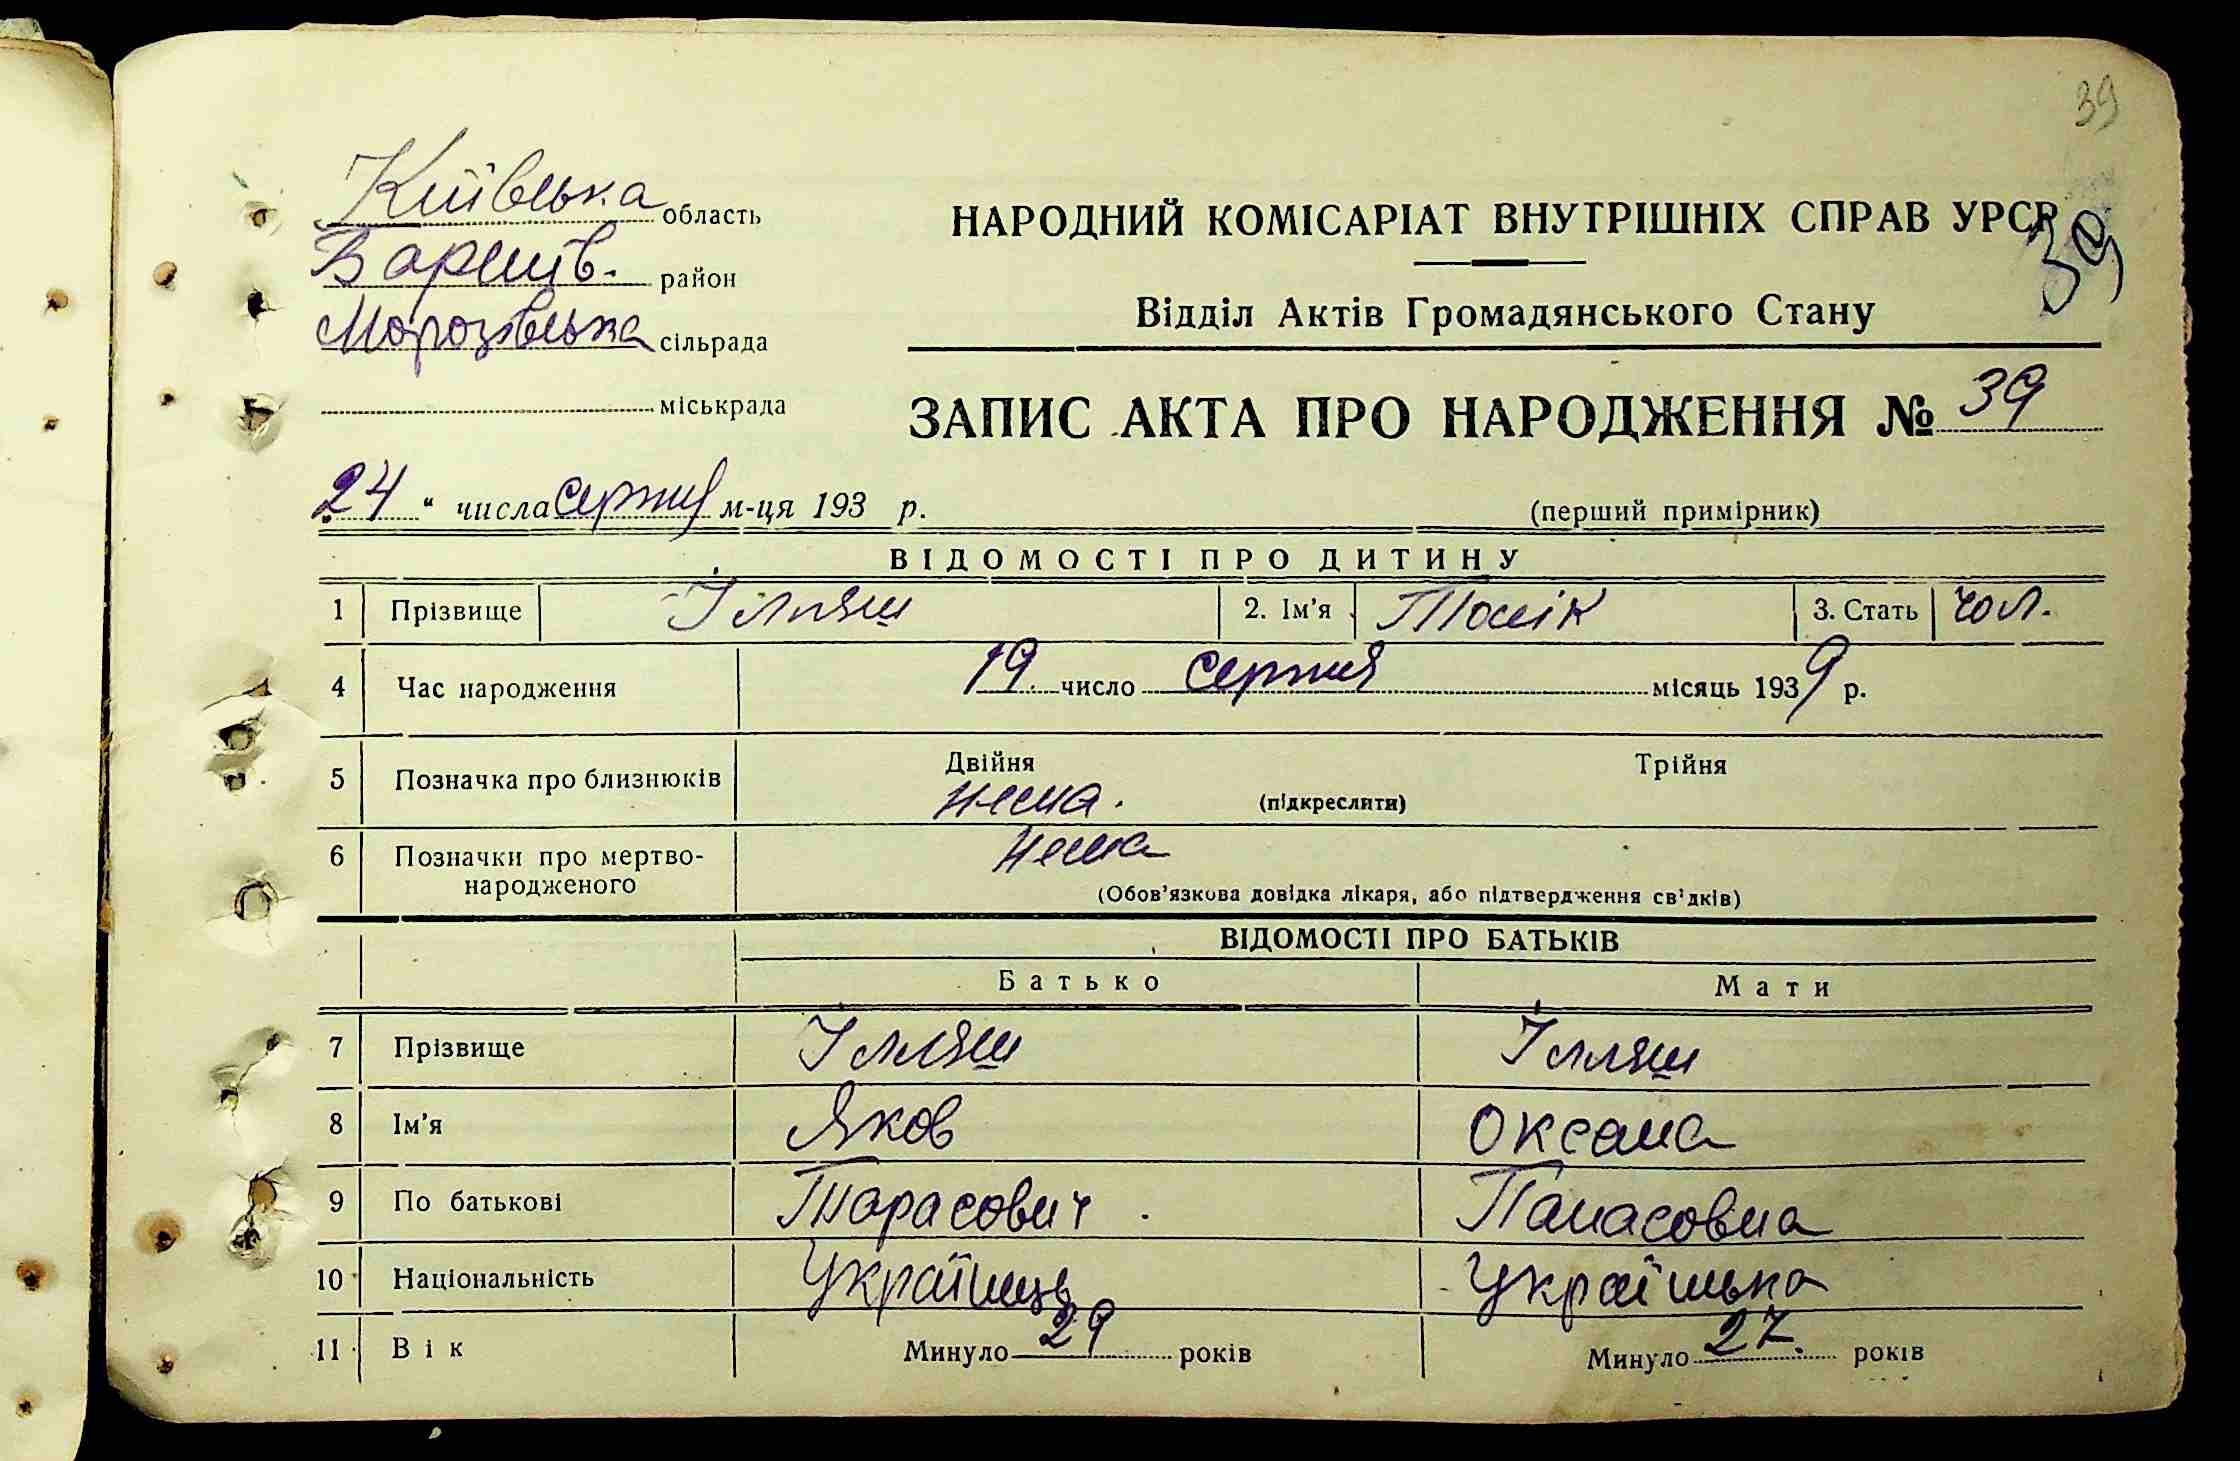 39
Київська область
Баришів. район
Морозівська сільрада
міськрада
НАРОДНИЙ КОМІСАРІАТ ВНУТРІШНІХ СПРАВ УРСР
39
Відділ Актів Громадянського Стану
ЗАПИС АКТА ПРО НАРОДЖЕННЯ № 39
„24“ числа серпня м-ця 193 р.
(перший примірник)
ВІДОМОСТІ ПРО ДИТИНУ
1 Прізвище Ілляш 2. Ім'я Толік 3. Стать чол.
4 Час народження 19 число серпня місяць 1939 р.
5 Позначка про близнюків Двійня Трійня
нема. (підкреслити)
6 Позначки про мертво- нема
народженого (Обов'язкова довідка лікаря, або підтвердження свідків)
ВІДОМОСТІ ПРО БАТЬКІВ
Батько Мати
7 Прізвище Ілляш Ілляш
8 Ім'я Яков Оксана
9 По батькові Тарасович Панасовна
10 Національність Українець Українька
11 Вік Минуло 29 років Минуло 27. років